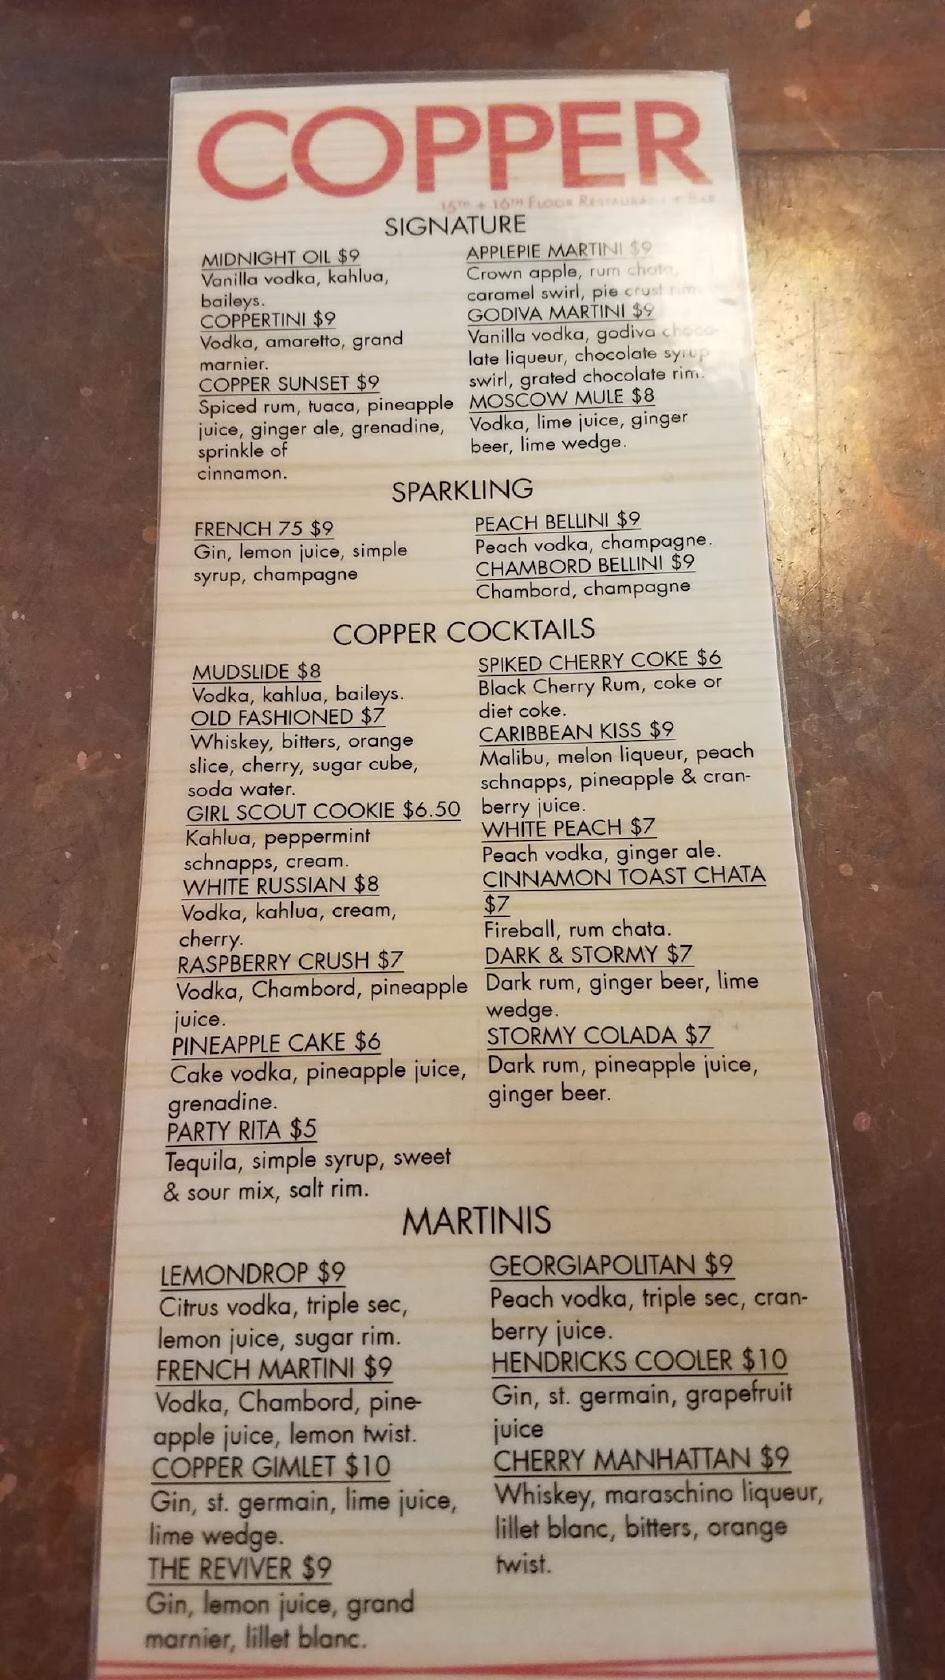 COPPER
15TH + 16TH FLOOR RESTAURANT + BAR
SIGNATURE
MIDNIGHT OIL $9
Vanilla vodka, kahlua,
baileys.
COPPERTINI $9
Vodka, amaretto, grand
marnier.
COPPER SUNSET $9
Spiced rum, tuaca, pineapple
juice, ginger ale, grenadine,
sprinkle of
cinnamon.
APPLEPIE MARTINI $9
Crown apple, rum chata,
caramel swirl, pie crust rim.
GODIVA MARTINI $9
Vanilla vodka, godiva choco-
late liqueur, chocolate syrup
swirl, grated chocolate rim.
MOSCOW MULE $8
Vodka, lime juice, ginger
beer, lime wedge.
SPARKLING
FRENCH 75 $9
Gin, lemon juice, simple
syrup, champagne
PEACH BELLINI $9
Peach vodka, champagne.
CHAMBORD BELLINI $9
Chambord, champagne
COPPER COCKTAILS
MUDSLIDE $8
Vodka, kahlua, baileys.
OLD FASHIONED $7
Whiskey, bitters, orange
slice, cherry, sugar cube,
soda water.
GIRL SCOUT COOKIE $6.50
Kahlua, peppermint
schnapps, cream.
WHITE RUSSIAN $8
Vodka, kahlua, cream,
cherry.
RASPBERRY CRUSH $7
Vodka, Chambord, pineapple
juice.
PINEAPPLE CAKE $6
Cake vodka, pineapple juice,
grenadine.
PARTY RITA $5
Tequila, simple syrup, sweet
& sour mix, salt rim.
SPIKED CHERRY COKE $6
Black Cherry Rum, coke or
diet coke.
CARIBBEAN KISS $9
Malibu, melon liqueur, peach
schnapps, pineapple & cran-
berry juice.
WHITE PEACH $7
Peach vodka, ginger ale.
CINNAMON TOAST CHATA
$7
Fireball, rum chata.
DARK & STORMY $7
Dark rum, ginger beer, lime
wedge.
STORMY COLADA $7
Dark rum, pineapple juice,
ginger beer.
MARTINIS
LEMONDROP $9
Citrus vodka, triple sec,
lemon juice, sugar rim.
FRENCH MARTINI $9
Vodka, Chambord, pine-
apple juice, lemon twist.
COPPER GIMLET $10
Gin, st. germain, lime juice,
lime wedge.
THE REVIVER $9
Gin, lemon juice, grand
marnier, lillet blanc.
GEORGIAPOLITAN $9
Peach vodka, triple sec, cran-
berry juice.
HENDRICKS COOLER $10
Gin, st. germain, grapefruit
juice
CHERRY MANHATTAN $9
Whiskey, maraschino liqueur,
lillet blanc, bitters, orange
twist.